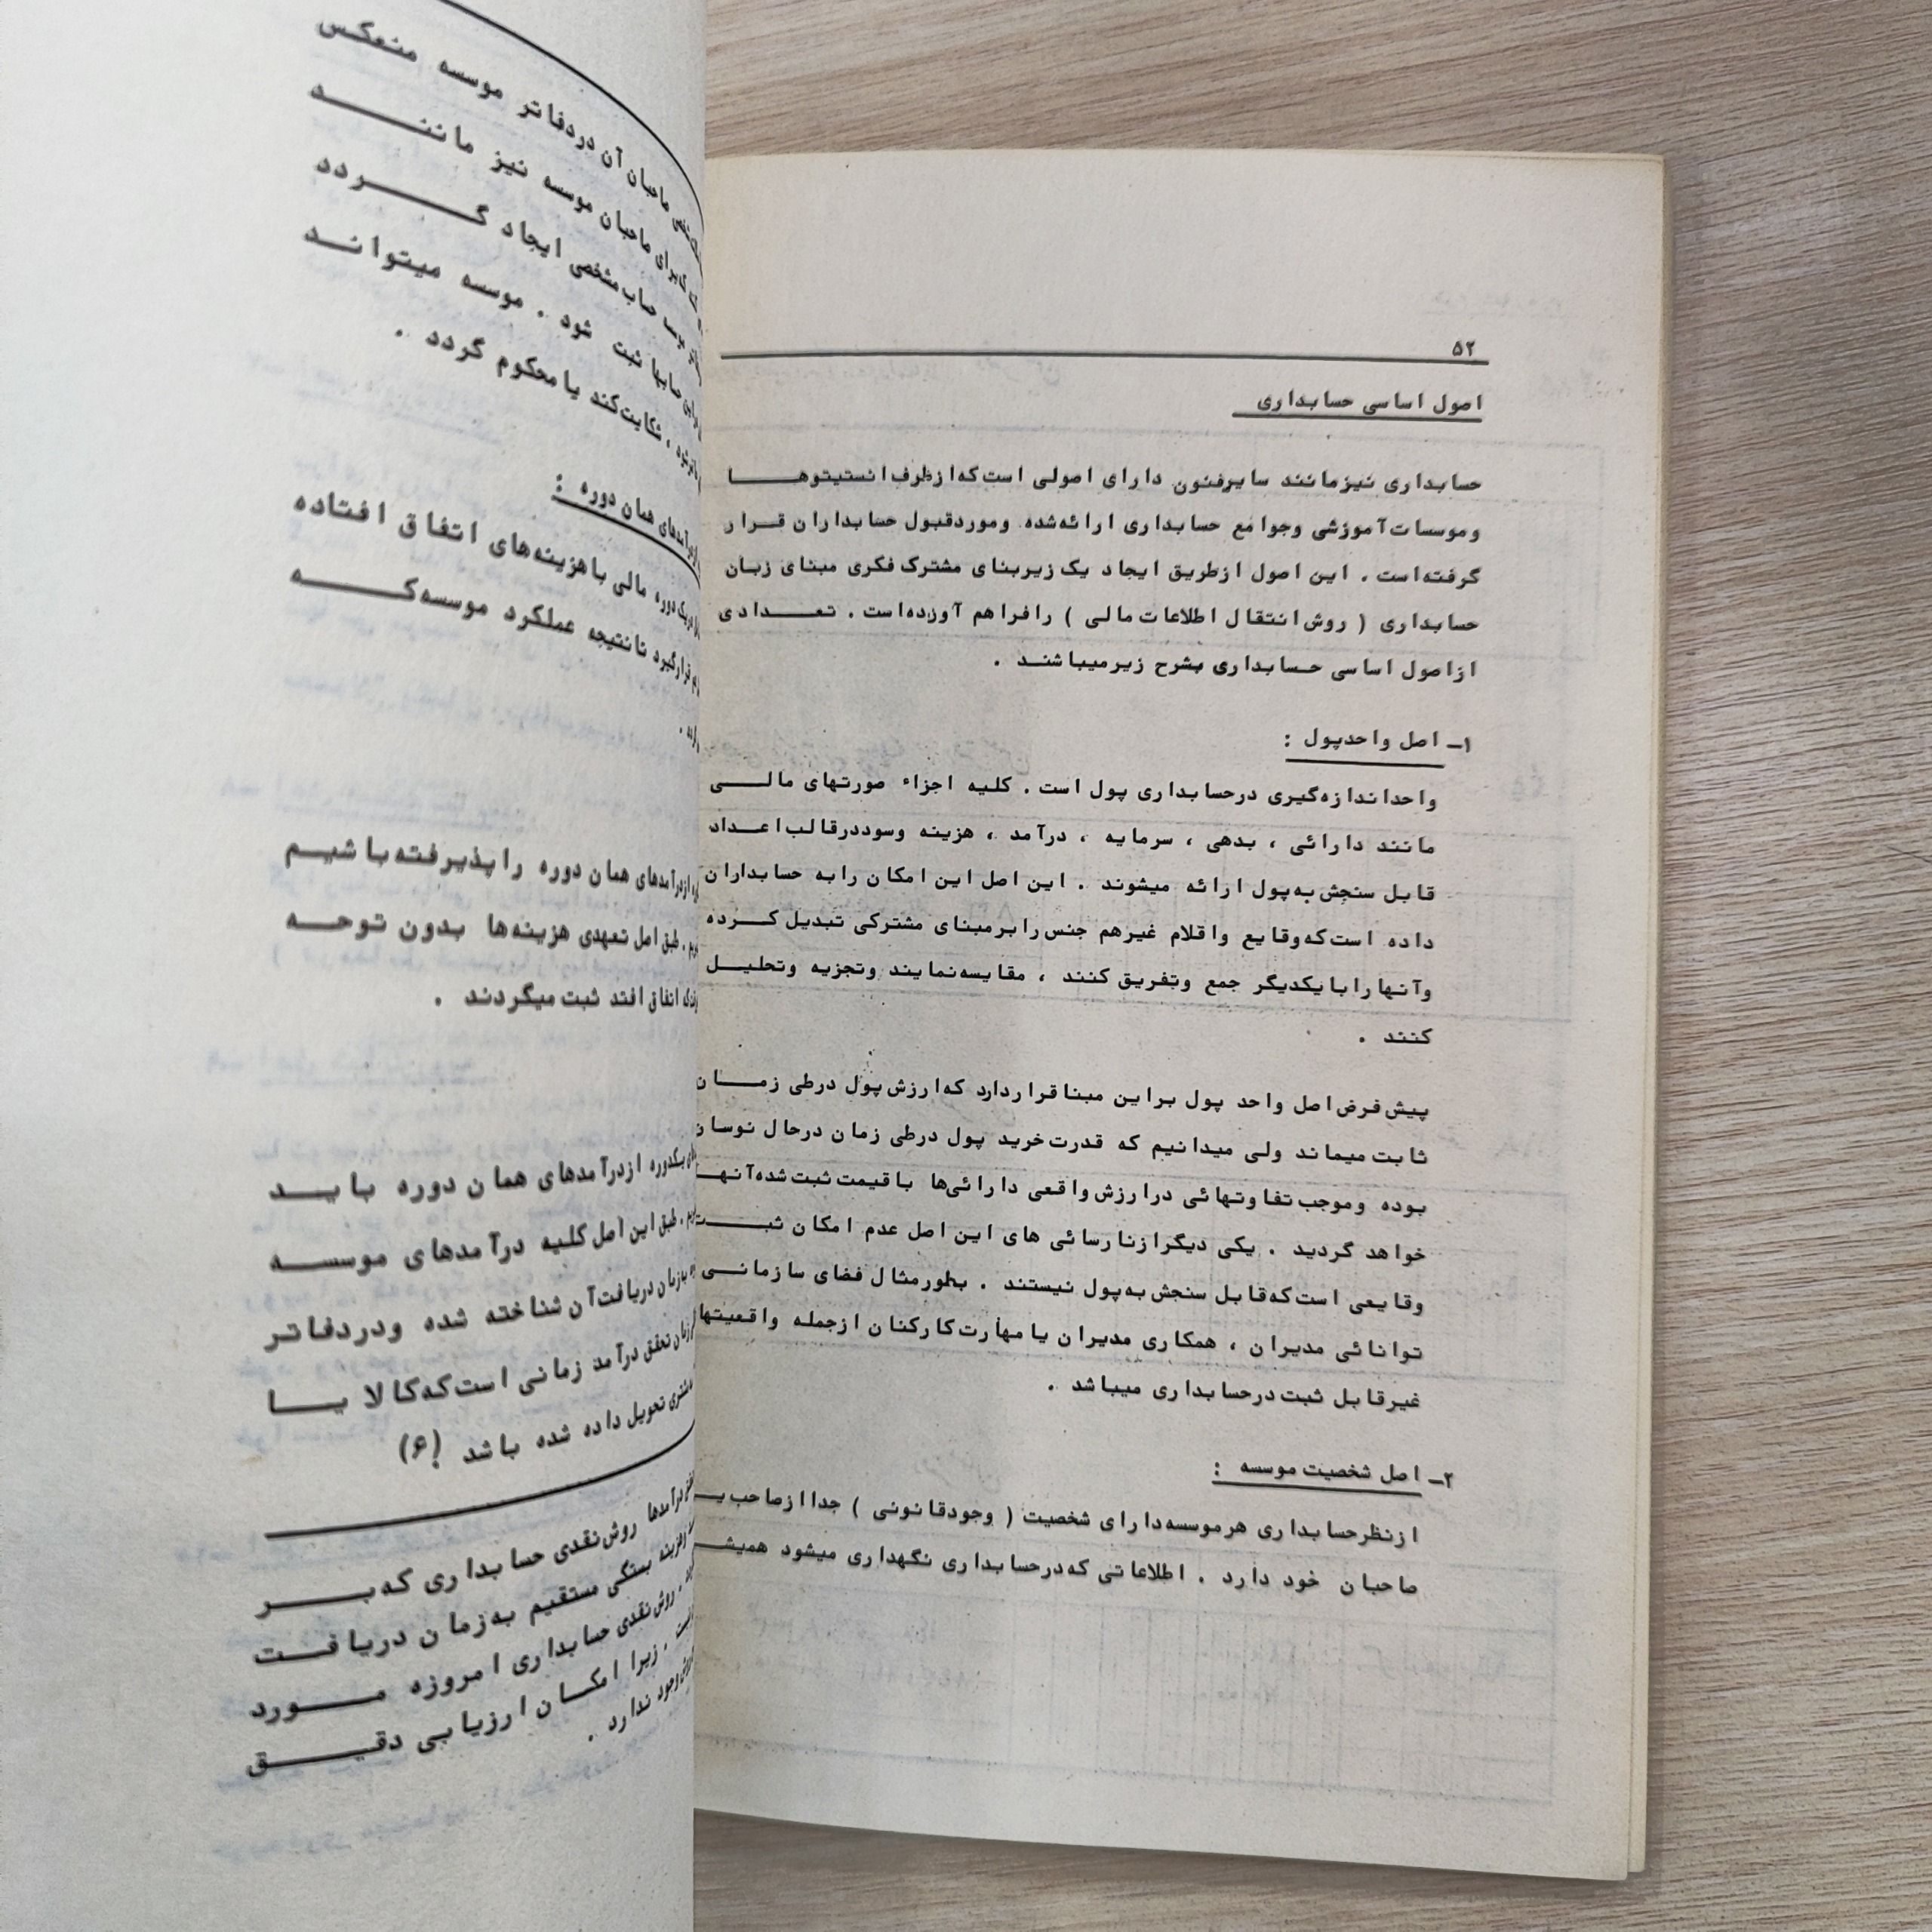 ۵۲
اصول اساسی حسابداری
حسابداری نیزمانند سایرفنون دارای اصولی است‌که‌ازطرف‌انستیتوها
وموسسات‌آموزشی وجوامع حسابداری ارائه‌شده وموردقبول حسابداران قرار
گرفته‌است . این اصول ازطریق ایجاد یک زیربنای مشترک فکری مبنای زبان
حسابداری ( روش‌انتقال اطلاعات مالی ) رافراهم آورده‌است . تعدادی
ازاصول اساسی حسابداری بشرح زیرمیباشند .
۱- اصل واحدپول :
واحداندازه‌گیری درحسابداری پول است . کلیه اجزاء صورتهای مالی
مانند دارائی ، بدهی ، سرمایه ، درآمد ، هزینه وسوددرقالب‌اعداد
قابل سنجش به‌پول ارائه میشوند . این اصل این امکان رابه حسابداران
داده است‌که‌وقایع واقلام غیرهم جنس‌رابرمبنای مشترکی تبدیل کرده
وآنهارابایکدیگر جمع وتفریق کنند ، مقایسه‌نمایند وتجزیه وتحلیل
کنند .
پیش‌فرض‌اصل واحد پول براین مبناقراردارد که‌ارزش‌پول درطی زمان
ثابت میماند ولی میدانیم که قدرت‌خرید پول درطی زمان درحال نوسان
بوده وموجب‌تفاوتهائی درارزش‌واقعی دارائی‌ها باقیمت‌ثبت‌شده‌آنها
خواهد گردید . یکی دیگرازنارسائی های این اصل عدم امکان ثبت
وقایعی است‌که‌قابل سنجش به‌پول نیستند . بطورمثال فضای سازمانی
توانائی مدیران ، همکاری مدیران یامهارت‌کارکنان ازجمله واقعیتها
غیرقابل ثبت‌درحسابداری میباشد .
۲- اصل شخصیت موسسه :
ازنظرحسابداری هرموسسه‌دارای شخصیت ( وجودقانونی ) جداازصاحب‌یـ
صاحبان خود دارد . اطلاعاتی که‌درحسابداری نگهداری میشود همیشـ
صاحبان آن دردفاتر موسسه منعکس
که‌برای صاحبان موسسه نیز مانند
حساب‌مشخصی ایجاد گردد
حسابها ثبت شود . موسسه میتواند
، شکایت‌کند یامحکوم گردد .
درآمدهای همان دوره :
مالی باهزینه‌های اتفاق افتاده
قرارگیرد تانتیجه عملکرد موسسه‌که
ازدرآمدهای همان دوره راپذیرفته‌باشیم
. طبق اصل تعهدی هزینه‌ها بدون توجه
اتفاق افتد ثبت میگردند .
یکدوره ازدرآمدهای همان دوره باید
. طبق این اصل کلیه درآمدهای موسسه
زمان دریافت‌آن شناخته شده ودردفاتر
زمان‌تحقق درآمد زمانی است‌که‌کالا یا
مشتری تحویل داده شده باشد (۶)
درآمدها روش‌نقدی حسابداری که‌بر
وهزینه بستگی مستقیم به‌زمان دریافت
. روش‌نقدی حسابداری امروزه مورد
. زیرا امکان ارزیابی دقیق
وجود ندارد .